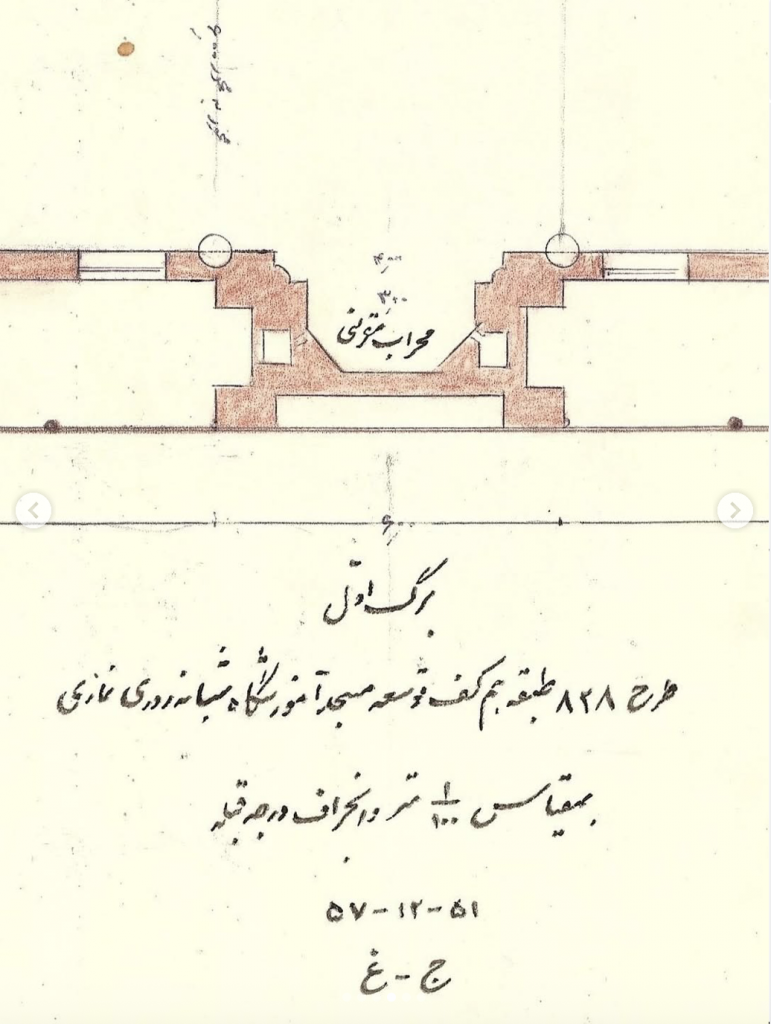 ۴٫۰۰
۳٫۰۰
محراب مقرنس
۶٫۰۰
برگ اول
طرح ۸۲۸ طبقه هم کف توسعه مسجد آموزشگاه شبانه روزی نمازی
بمقیاس ۱/۱۰۰ متر و انحراف درجه قبله
۵۷-۱۲-۵۱
ج-غ